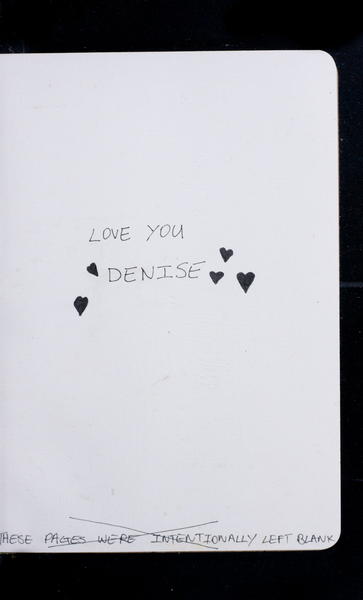 LOVE YOU
DENISE
THESE PAGES WERE INTENTIONALLY LEFT BLANK